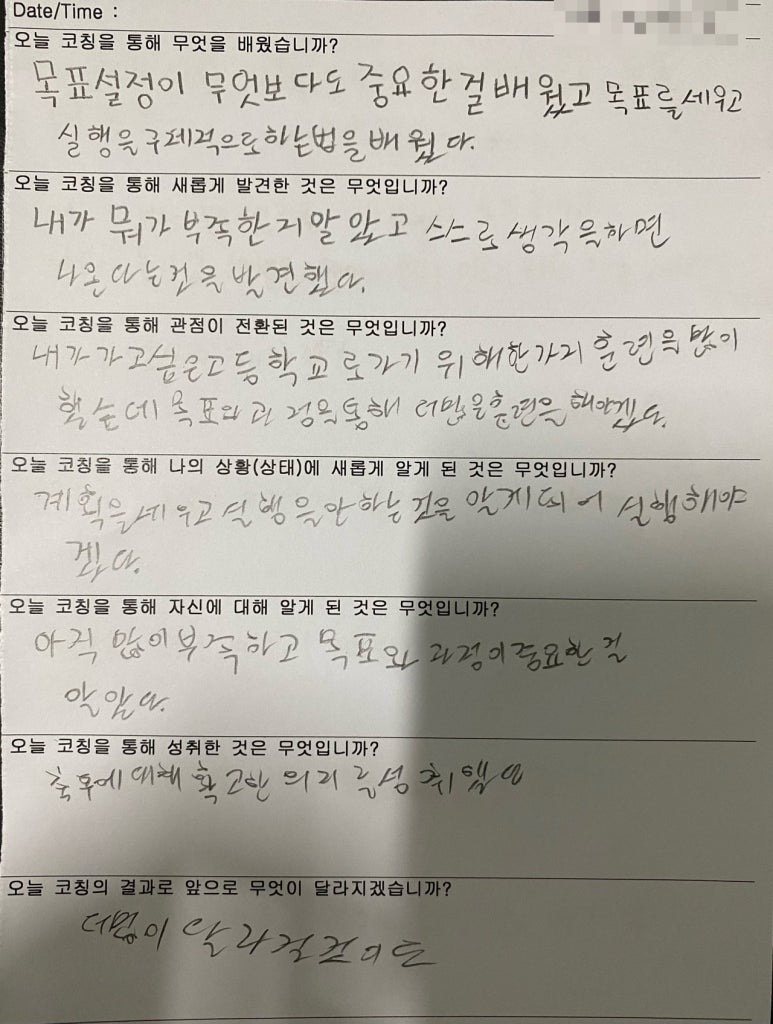 Date/Time :
오늘 코칭을 통해 무엇을 배웠습니까?
목표설정이 무엇보다도 중요한 걸 배웠고 목표를 세우고
실행을 구체적으로하는법을 배웠다.
오늘 코칭을 통해 새롭게 발견한 것은 무엇입니까?
내가 뭐가 부족한지 알았고 스스로 생각을하면
나온다는 것을 발견했다.
오늘 코칭을 통해 관점이 전환된 것은 무엇입니까?
내가 가고싶은고등학교로가기 위해한가지 훈련을 많이
했는데 목표와 과정을통해 더많을훈련을 해야겠다.
오늘 코칭을 통해 나의 상황(상태)에 새롭게 알게 된 것은 무엇입니까?
계획을세우고 실행을안하는 것을 알게되어 실행해야
겠다.
오늘 코칭을 통해 자신에 대해 알게 된 것은 무엇입니까?
아직 많이부족하고 목표와 과정이중요한 걸
알았다.
오늘 코칭을 통해 성취한 것은 무엇입니까?
축구에 대해 확고한 의지를성취했
오늘 코칭의 결과로 앞으로 무엇이 달라지겠습니까?
달라질